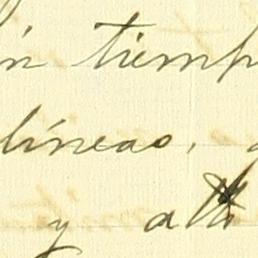 n tiemp
líneas,
y